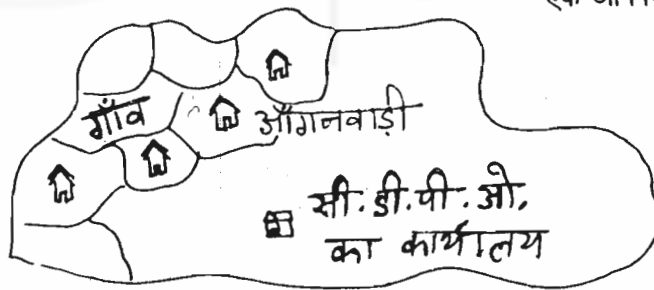 एक
गाँव
आँगनवाड़ी
सी. डी. पी. ओ.
का कार्यालय